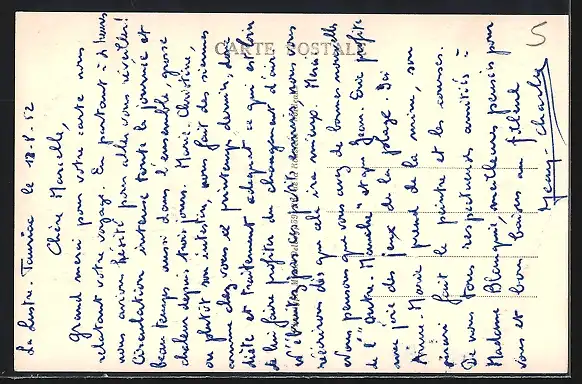 CARTE POSTALE
5
La Lustre. Tunisie le 18-8-52
Chère Marcelle,
Grand merci pour votre carte nous
relatant votre voyage. En partant à 2 heures
nous avions hésité pour aller vous réveiller!
Circulation intense toute la journée et
beau temps aussi dans l'ensemble grosse
chaleur depuis trois jours. Marie Christine,
ou plutôt son intestin, nous fait des siennes
comme chez vous le printemps dernier, donc
diète et traitement adéquat ce qui est loin
de lui faire profiter du changement d'air.
N'ébruitez pas nous vous
récrirons dès que cela ira mieux. Merci
Nous pensons que vous avez de bonnes nouvelles
de l'"Outre-Manche" et que Jean-Eric profite
avec joie des jeux de la plage. Ici
Anne-Marie prend de la mine, son
mari fait le peintre et les courses.
De nous tous respectueuses amitiés à
Madame meilleures pensées pour
vous et bons baisers au filleul
Jenny Charles